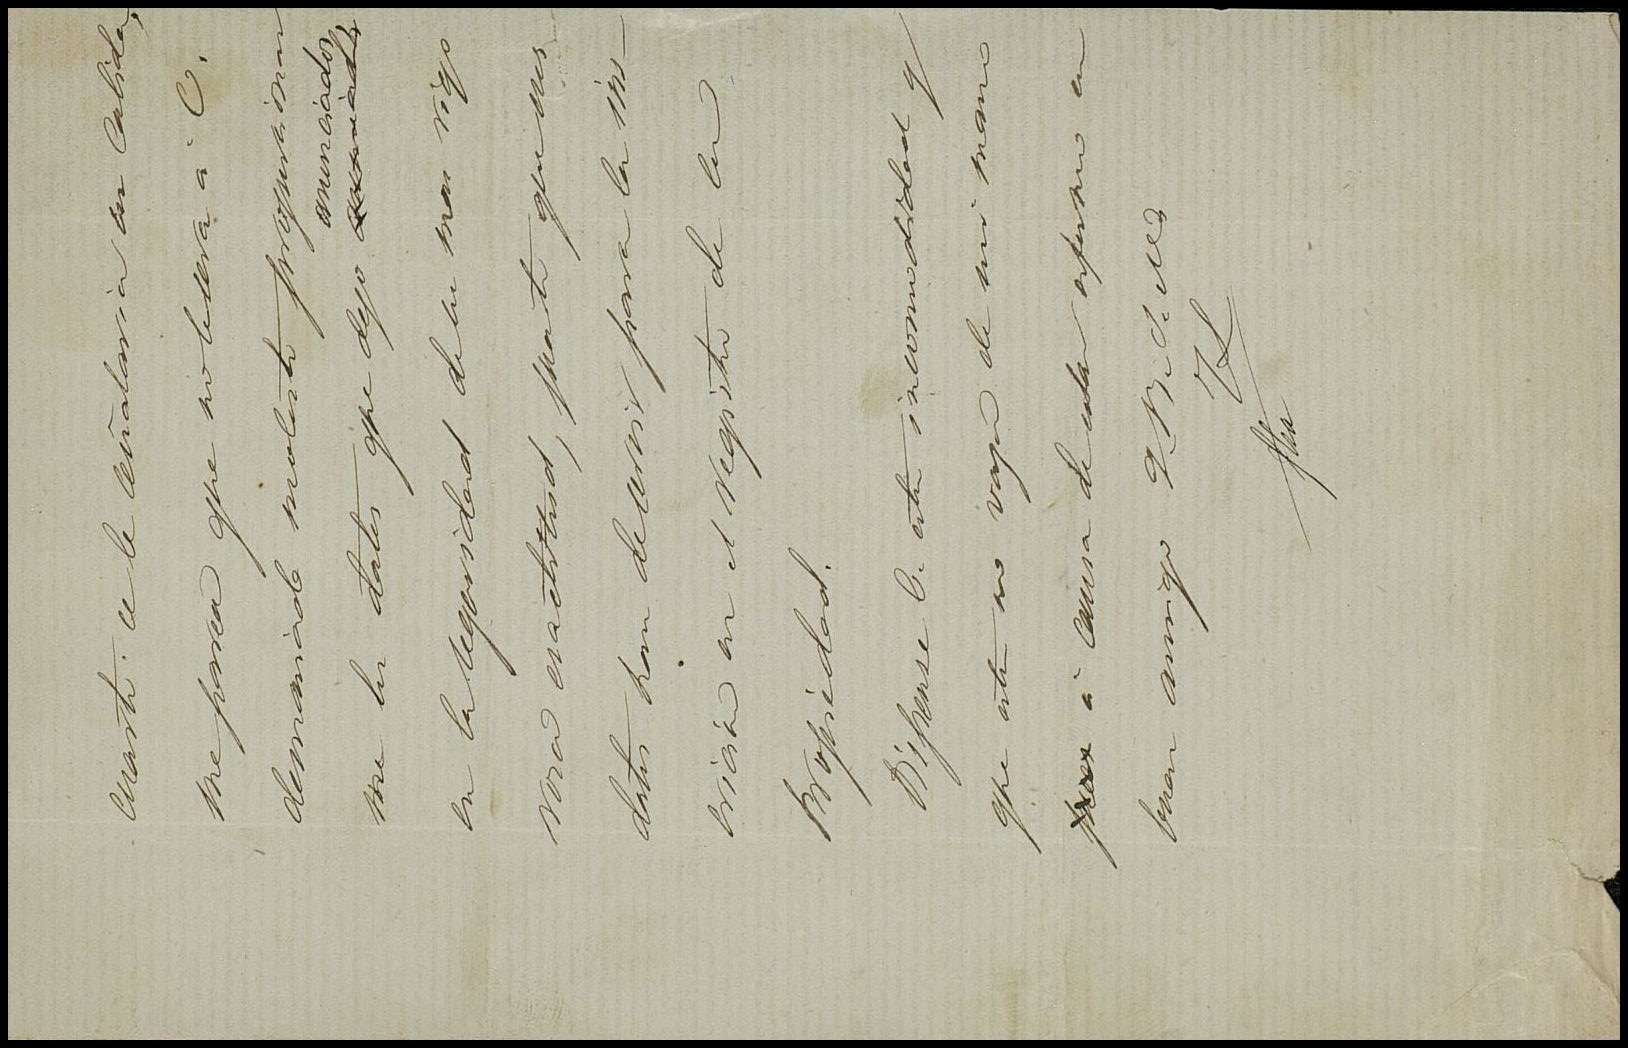 cuanto se le señalaria en cabida,
me parece que no le será á V.
demasiado molesto proporcionar
anunciados
me los datos que dejo
en la seguridad de su mas rigo
rosa exactitud, puesto que tales
datos han de servir para la ins-
cripción en el registro de la
Propiedad.
Dispense V. esta incomodidad y
que esta no vaya de mi mano
pues á causa de estar enfermo su
buen amigo Q. B. S. M.